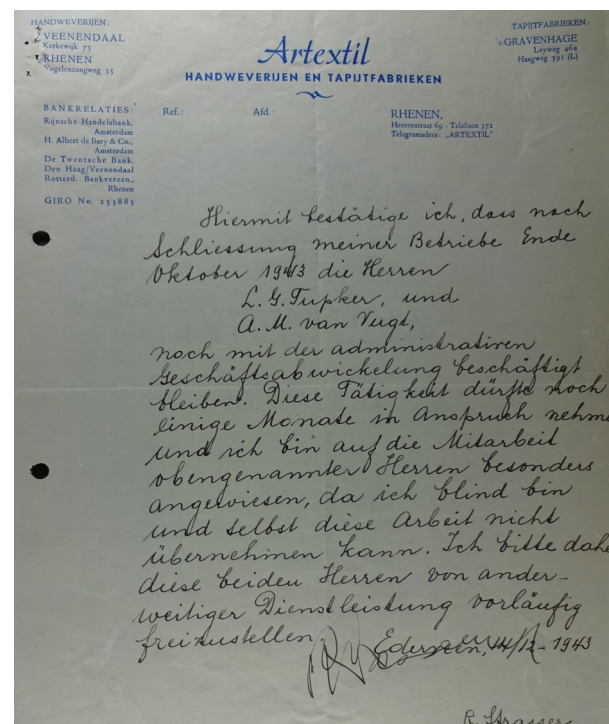 HANDWEVERIJEN:
VEENENDAAL
Kerkewijk 75
RHENEN
Vogelenzangweg 35
Artextil
HANDWEVERIJEN EN TAPIJTFABRIEKEN
TAPIJTFABRIEKEN:
's-GRAVENHAGE
Leyweg 46a
Haagweg 591 (L)
BANKRELATIES:
Rijnsche Handelsbank,
Amsterdam
H. Albert de Bary & Co.,
Amsterdam
De Twentsche Bank,
Den Haag/Veenendaal
Rotterd. Bankvereen.,
Rhenen
GIRO No. 253885
Ref.:
Afd.:
RHENEN,
Heerenstraat 69 - Telefoon 372
Telegramadres: „ARTEXTIL"
Hiermit bestätige ich, dass nach
Schliessung meiner Betriebe Ende
Oktober 1943 die Herren
L. G. Tupker, und
A. M. van Vugt,
noch mit der administrativen
Geschäftsabwickelung beschäftigt
bleiben. Diese Tätigkeit dürfte noch
einige Monate in Anspruch nehme
und ich bin auf die Mitarbeit
obengenannter Herren besonders
angewiesen, da ich blind bin
und selbst diese Arbeit nicht
übernehmen kann. Ich bitte dahe
diese beiden Herren von ander-
weitiger Dienstleistung vorläufig
freizustellen.
14/12-1943
R. Strasser